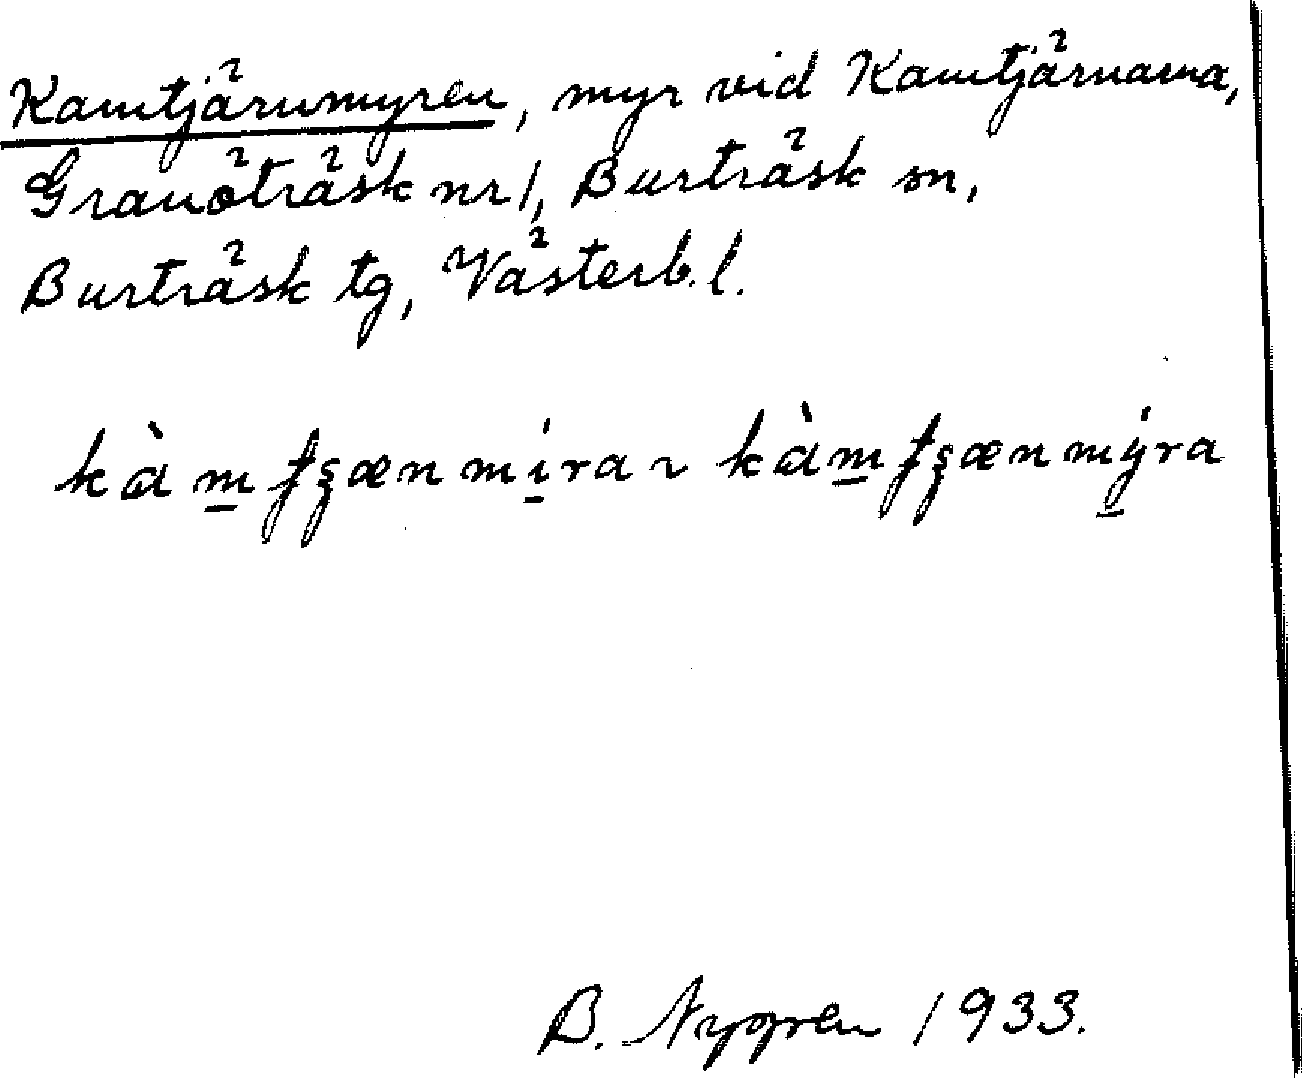 Kamtjärnmyren, myr vid Kamtjärnarna,
Granöträsk nr 1, Burträsk sn,
Burträsk tg, Västerb. l.
kàm̲ƭʂænmi̲ra ~ kàm̲ƭʂænmy̲ra
B. Nygren 1933.